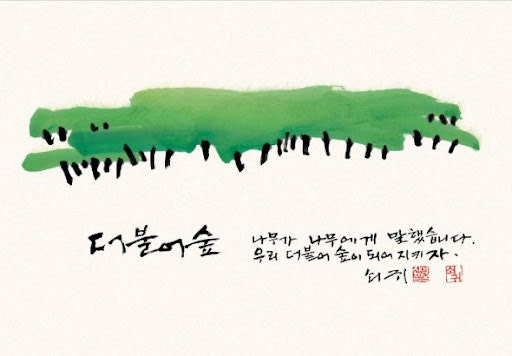 더불어숲
나무가 나무에게 말했습니다.
우리 더불어 숲이 되어 지키자.
쇠귀